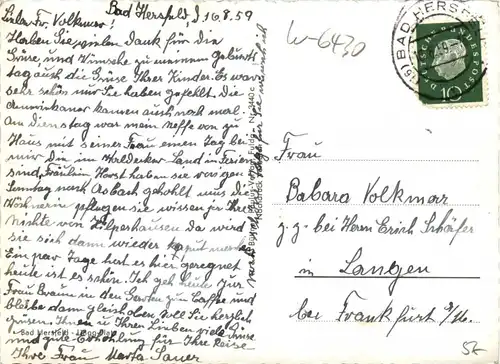 Bad Hersfeld, d 16.8.59
Liebe Fr Volkmar!
Haben Sie vielen Dank für die
Grüse und Wünsche zu meinem Geburts
tag auch die Grüse Ihrer Kinder. Es war
sehr schön nur Sie haben gefehlt. Die
kamen auch noch mal
am Dienstag war mein Neffe von zu
Haus mit seiner Frau einen Tag bei
mir die im Waldecker Land in Ferien
sind, Fräulein Horst haben sie vorigen
Sonntag nach Asbach gehohlt uns die
pflegen sie wissen ja Ihre
Nichte von Hilperhausen da wird
sie sich dann wieder
Ein par Tage hat es hier geregnet
heute ist es schön. Ich geh heute zur
Frau Braun in den Garten zum Caffee und
bleibe dann gleich oben soll Sie herzlich
grüsen. Ihnen u Ihren Lieben viele Grüse
und gute Erhohlung für Ihre
Ihre Frau Marta Sauer
Bad Hersfeld
W-6430
BAD HERSF
DEUTSCHE BUNDESPOST
10
Frau
Babara Volkmar
z. z. bei Herrn Erich Schäfer
in Langen
bei Frankfurt a/M.